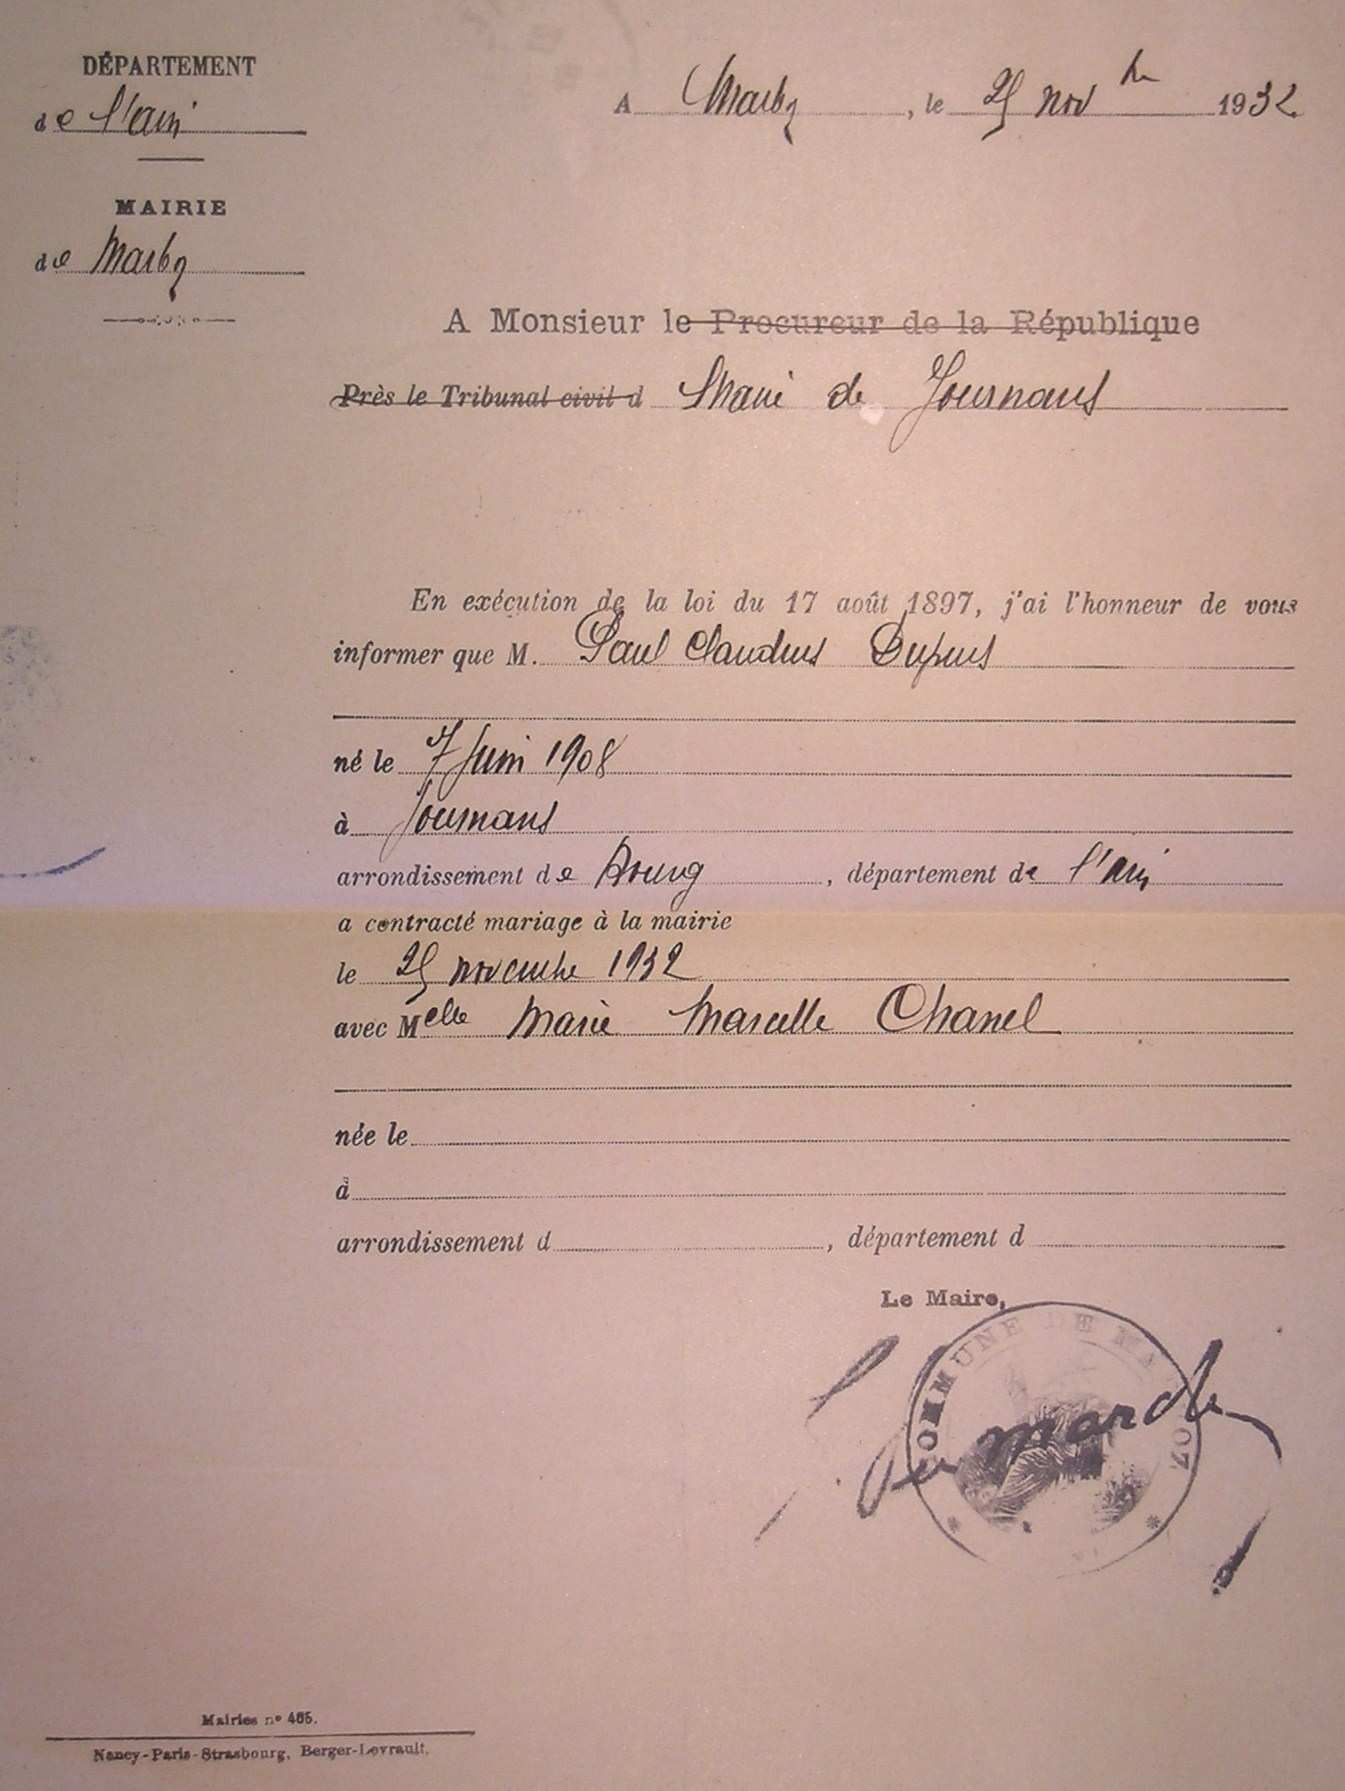 DÉPARTEMENT
de l'ain
MAIRIE
de Marboz
A Marboz, le 25 nov bre 1932
A Monsieur le Procureur de la République
Près le Tribunal civil d Maire de Journans
En exécution de la loi du 17 août 1897, j'ai l'honneur de vous
informer que M. Paul Claudius Dupuis
né le 7 Juin 1908
à Journans
arrondissement de Bourg, département de l'ain
a contracté mariage à la mairie
le 25 novembre 1932
avec Melle Marie Marcelle Chanel
née le
à
arrondissement d , département d
Le Maire,
COMMUNE DE MARBOZ
Mairies nº 465.
Nancy-Paris-Strasbourg, Berger-Levrault.